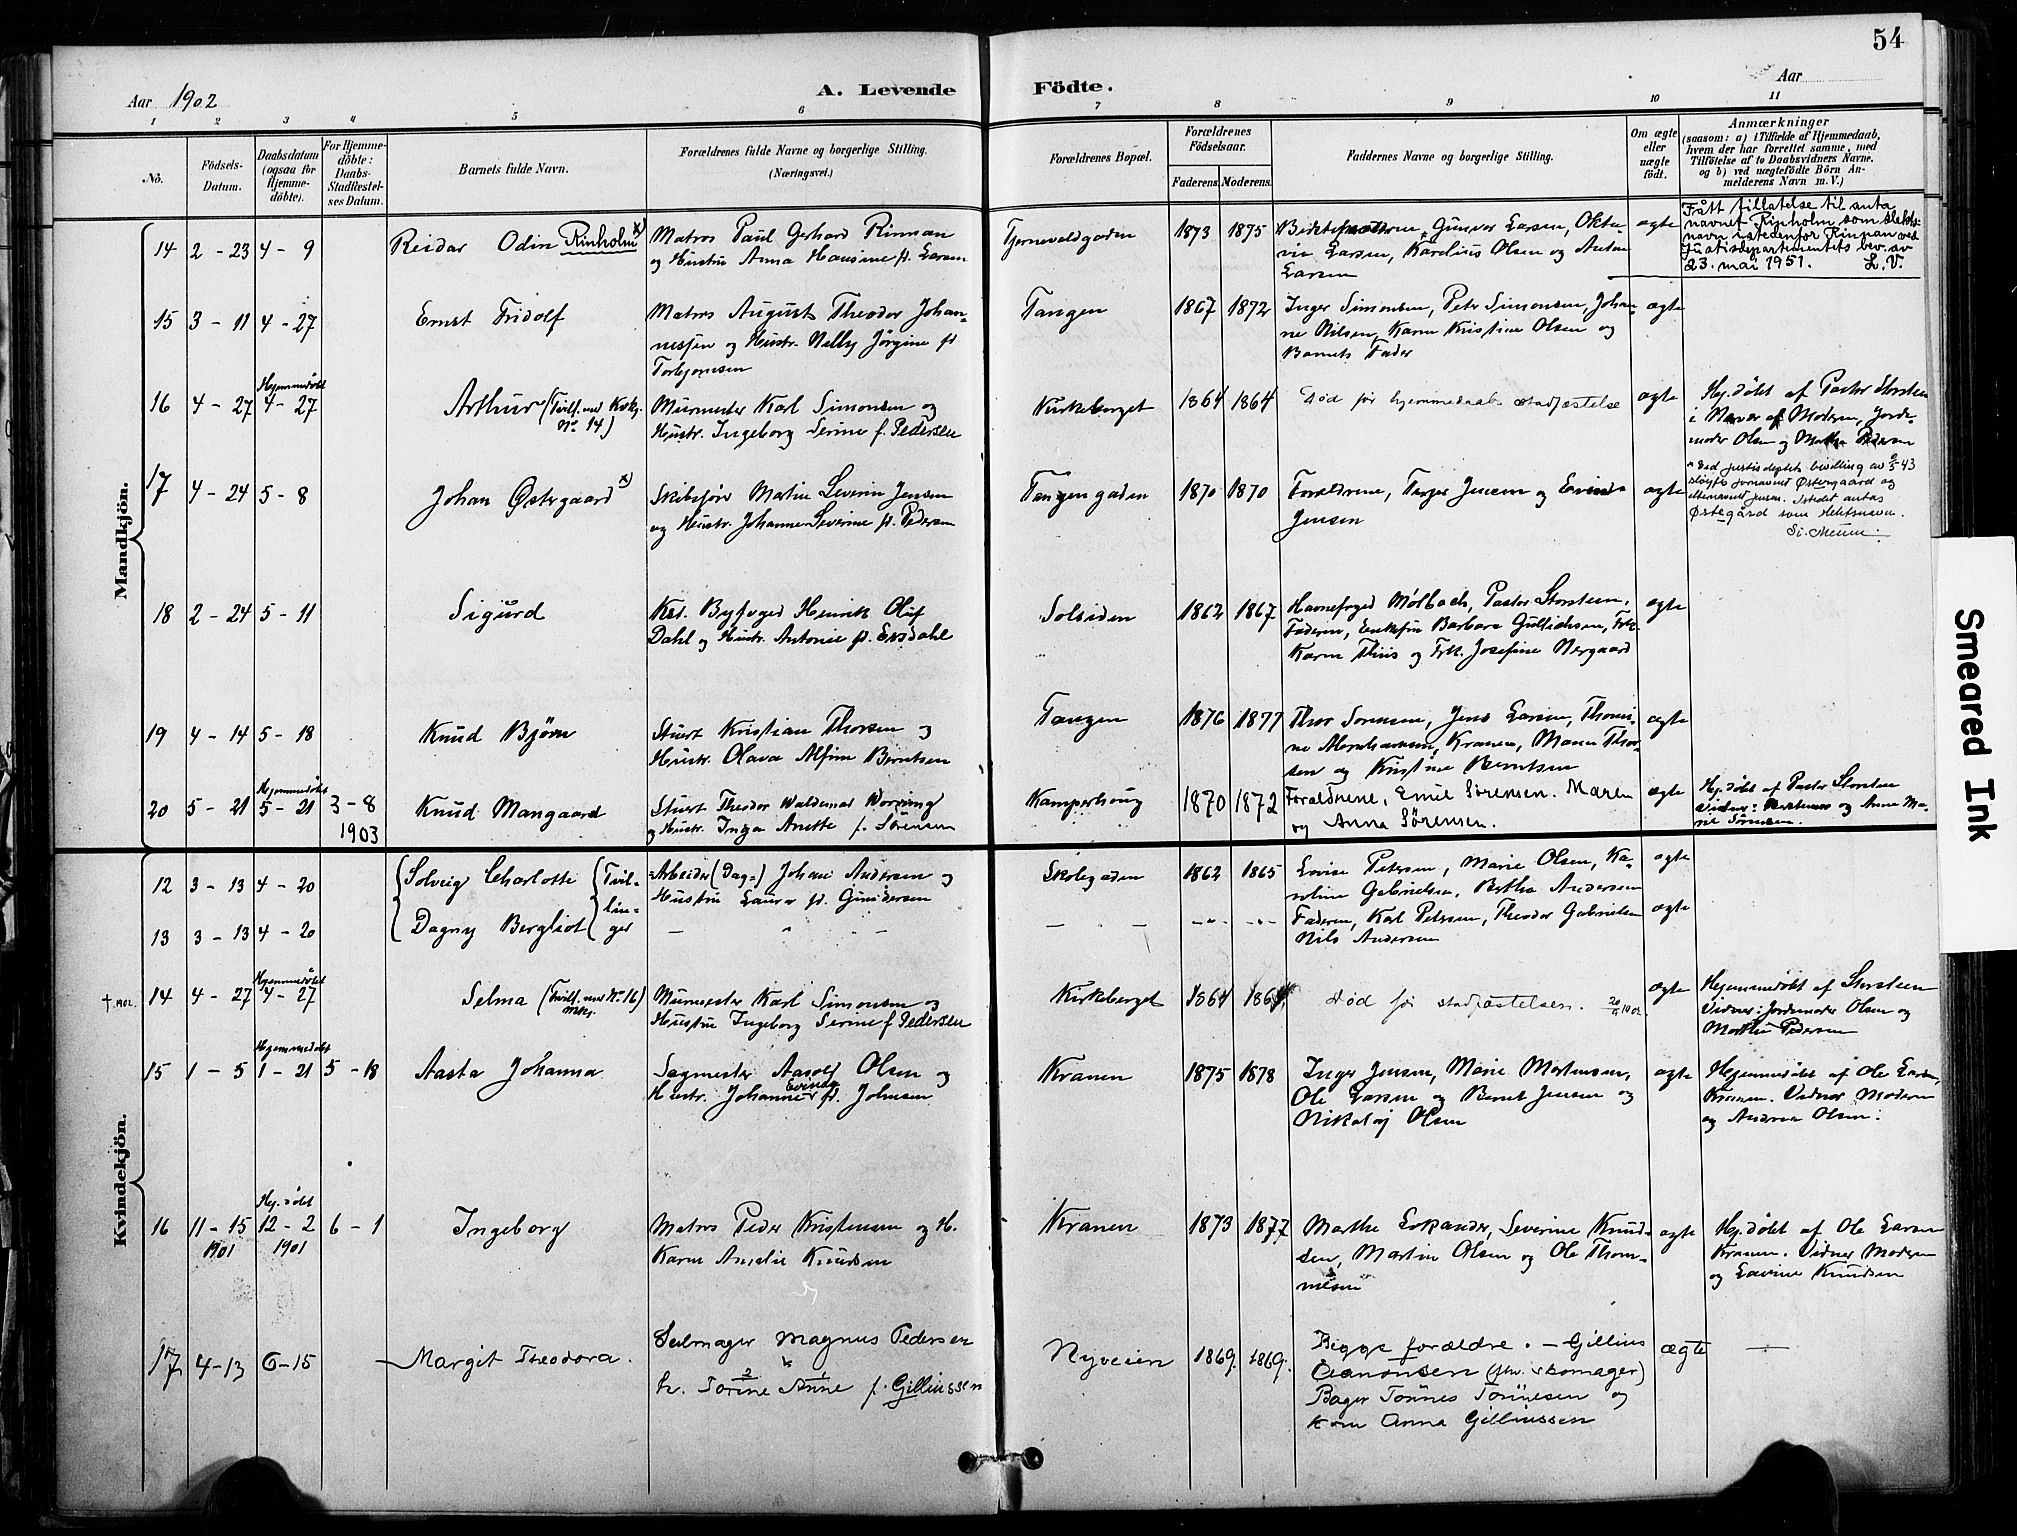 54
Aar 1902
A. Levende Födte.
Aar
1 2 3 4 5 6 7 8 9 10 11
No.
Födsels-
Datum.
Daabsdatum
(ogsaa for
Hjemme-
döbte).
For Hjemme-
döbte:
Daabs-
Stadfæstel-
ses Datum.
Barnets fulde Navn.
Forældrenes fulde Navne og borgerlige Stilling.
(Næringsvei.)
Forældrenes Bopæl.
Forældrenes
Födselsaar.
Faderens. Moderens.
Faddernes Navne og borgerlige Stilling.
Om ægte
eller
uægte
födt.
Anmærkninger
(saasom: a) i Tilfælde af Hjemmedaab,
hvem der har forrettet samme, med
Tilföielse af to Daabsvidners Navne.
og b) ved uægtefödte Börn An-
melderens Navn m. V.)
Mandkjön.
14 2 - 23 4 - 9 Reidar Odin Rinholm x)
Matros Paul Gerhard Rinnan
og Hustru Anna Hansine f. Larsen
Tjernevoldgaden 1873 1875
Gunvor Larsen, Okta-
vie Larsen, Karelius Olsen og Anton
Larsen
ægte
Fått tillatelse til anta
navnet Rinholm som slekts-
navn istedenfor Rinnan ved
Justisdepartementets bev. av
23. mai 1951. L.V.
15 3 - 11 4 - 27 Ernst Fridolf
Matros August Theodor Johan-
nessen og Hustr. Nelly Jörgine f.
Torbjornsen
Tangen 1867 1872
Inger Simonsen, Peter Simonsen, Johan-
ne Nilsen, Karen Kristine Olsen og
Barnets Fader
ægte
16 4 - 27 Hjemmedøbt 4 - 27 Arthur (Tvill. med Kvkj.
No. 14)
Murmester Karl Simonsen og
Hustr. Ingeborg Serine f. Pedersen
Kirkeberget 1864 1864
Død før hjemmedaabs stadfæstelse
ægte
Hj. døbt af Pastor Storsteen
i Nærvær af Moderen, Jorde-
moder Olsen og Marthe Pedersen
17 4 - 24 5 - 8 Johan Østergaard x)
Skibsförer Martin Severin Jensen
og Hustr. Johanne Severine f. Pedersen
Tangengaden 1870 1870
Forældrene, Terjer Jensen og
Jensen
ægte
x Ved justisdeptets bevilling av 9/3-43
sløyfes fornavnet Østergaard og
etternavnet Jensen. Istedet antas
Østegård som slektsnavn.
18 2 - 24 5 - 11 Sigurd
Kst. Byfoged Henrik Oluf
Dahl og Hustr. Antonie f. Eksdahl
Solsiden 1862 1867
Havnefoged Mølbach, Pastor Storsteen,
Faderen, Enkefru Barbara Gullichsen, Frk.
Karen Thiis og Frk. Josefine Nergaard
ægte
19 4 - 14 5 - 18 Knud Bjørn
Stuert Kristian Thorsen og
Hustr. Olava Alfine Berntsen
Tangen 1876 1877
Thor Sorensen, Jens Larsen, Thomi-
ne Abrahamsen, Kranen, Maren Thor-
sen og Kristine Berntsen
ægte
20 5 - 21 Hjemmedøbt 5 - 21 3 - 8
1903
Knud Mangaard
Stuert Theodor Valdemar Worning
og Hustr. Inga Anette f. Sörensen
Kamperhoug 1870 1872
Forældrene, Emil Sörensen, Maren
og Anna Sörensen.
ægte
Hj. døbt af Pastor Storsteen
Vidner: og Anne Ma-
rie Sörensen.
Kvindekjön.
12 3 - 13 4 - 20 Solveig Charlotte
Tvil-
lin-
ger
Arbeider (Dag-) Johan Andersen og
Hustru Laura f. Gundersen
Skolegaden 1862 1865
Lovise Petersen, Marie Olsen, Ka-
roline Gabrielsen, Bertha Andersen
ægte
13 3 - 13 4 - 20 Dagny Bergliot
Faderen, Karl Petersen, Theodor Gabrielsen
Nils Andersen
ægte
† 1902. 14 4 - 27 Hjemmedøbt 4 - 27 Selma (Tvill. med No. 16)
mkj.
Murmester Karl Simonsen og
Hustru Ingeborg Serine f. Pedersen
Kirkeberget 1864 1864
Død før stadfæstelsen. 20/9 1902
ægte
Hjemmedøbt af Storsteen
Vidner: Jordemoder Olsen og
Marthe Pedersen
15 1 - 5 Hjemmedøbt 1 - 21 5 - 18 Aasta Johanna
Sagmester Aasold Olsen og
Hustr. Johanne f. Johnsen
Kranen 1875 1878
Inger Jensen, Marie Martinsen,
Ole Larsen og Bernt Jensen og
Nikolaj Olsen
ægte
Hjemmedøbt af Ole Larsen,
Kranen. Vidner Moderen
og Andrea Olsen.
16 11 - 15 1901 Hj. døbt 12 - 2 1901 6 - 1 Ingeborg
Matros Peder Kristensen og H.
Karen Amalie Knudsen
Kranen 1873 1877
Marthe Eskander, Severine Knud-
sen, Martin Olsen og Ole Thom-
mesen
ægte
Hj. døbt af Ole Larsen
Kranen. Vidner Moderen
og Lavine Knudsen
17 4 - 13 6 - 15 Margit Theodora.
Seilmager Magnus Pedersen
h. Torine Anne f. Gilliussen
Nyveien 1869. 1869.
Begge forældre. - Gillius
Aanonsen (fhv. skomager)
Bager Tönnes Tönnesen og
kone Anna Gilliussen
ægte —
Smeared Ink